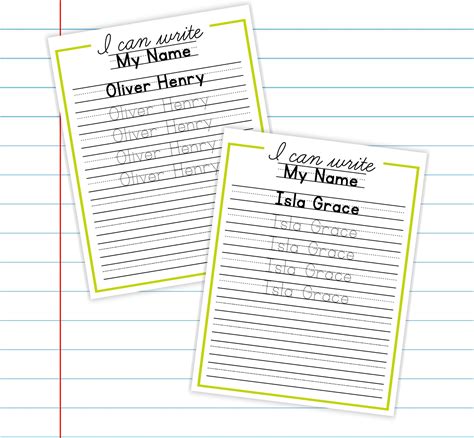 I can write
My Name
Oliver Henry
Oliver Henry
Oliver Henry
Oliver Henry
Oliver Henry
I can write
My Name
Isla Grace
Isla Grace
Isla Grace
Isla Grace
Isla Grace